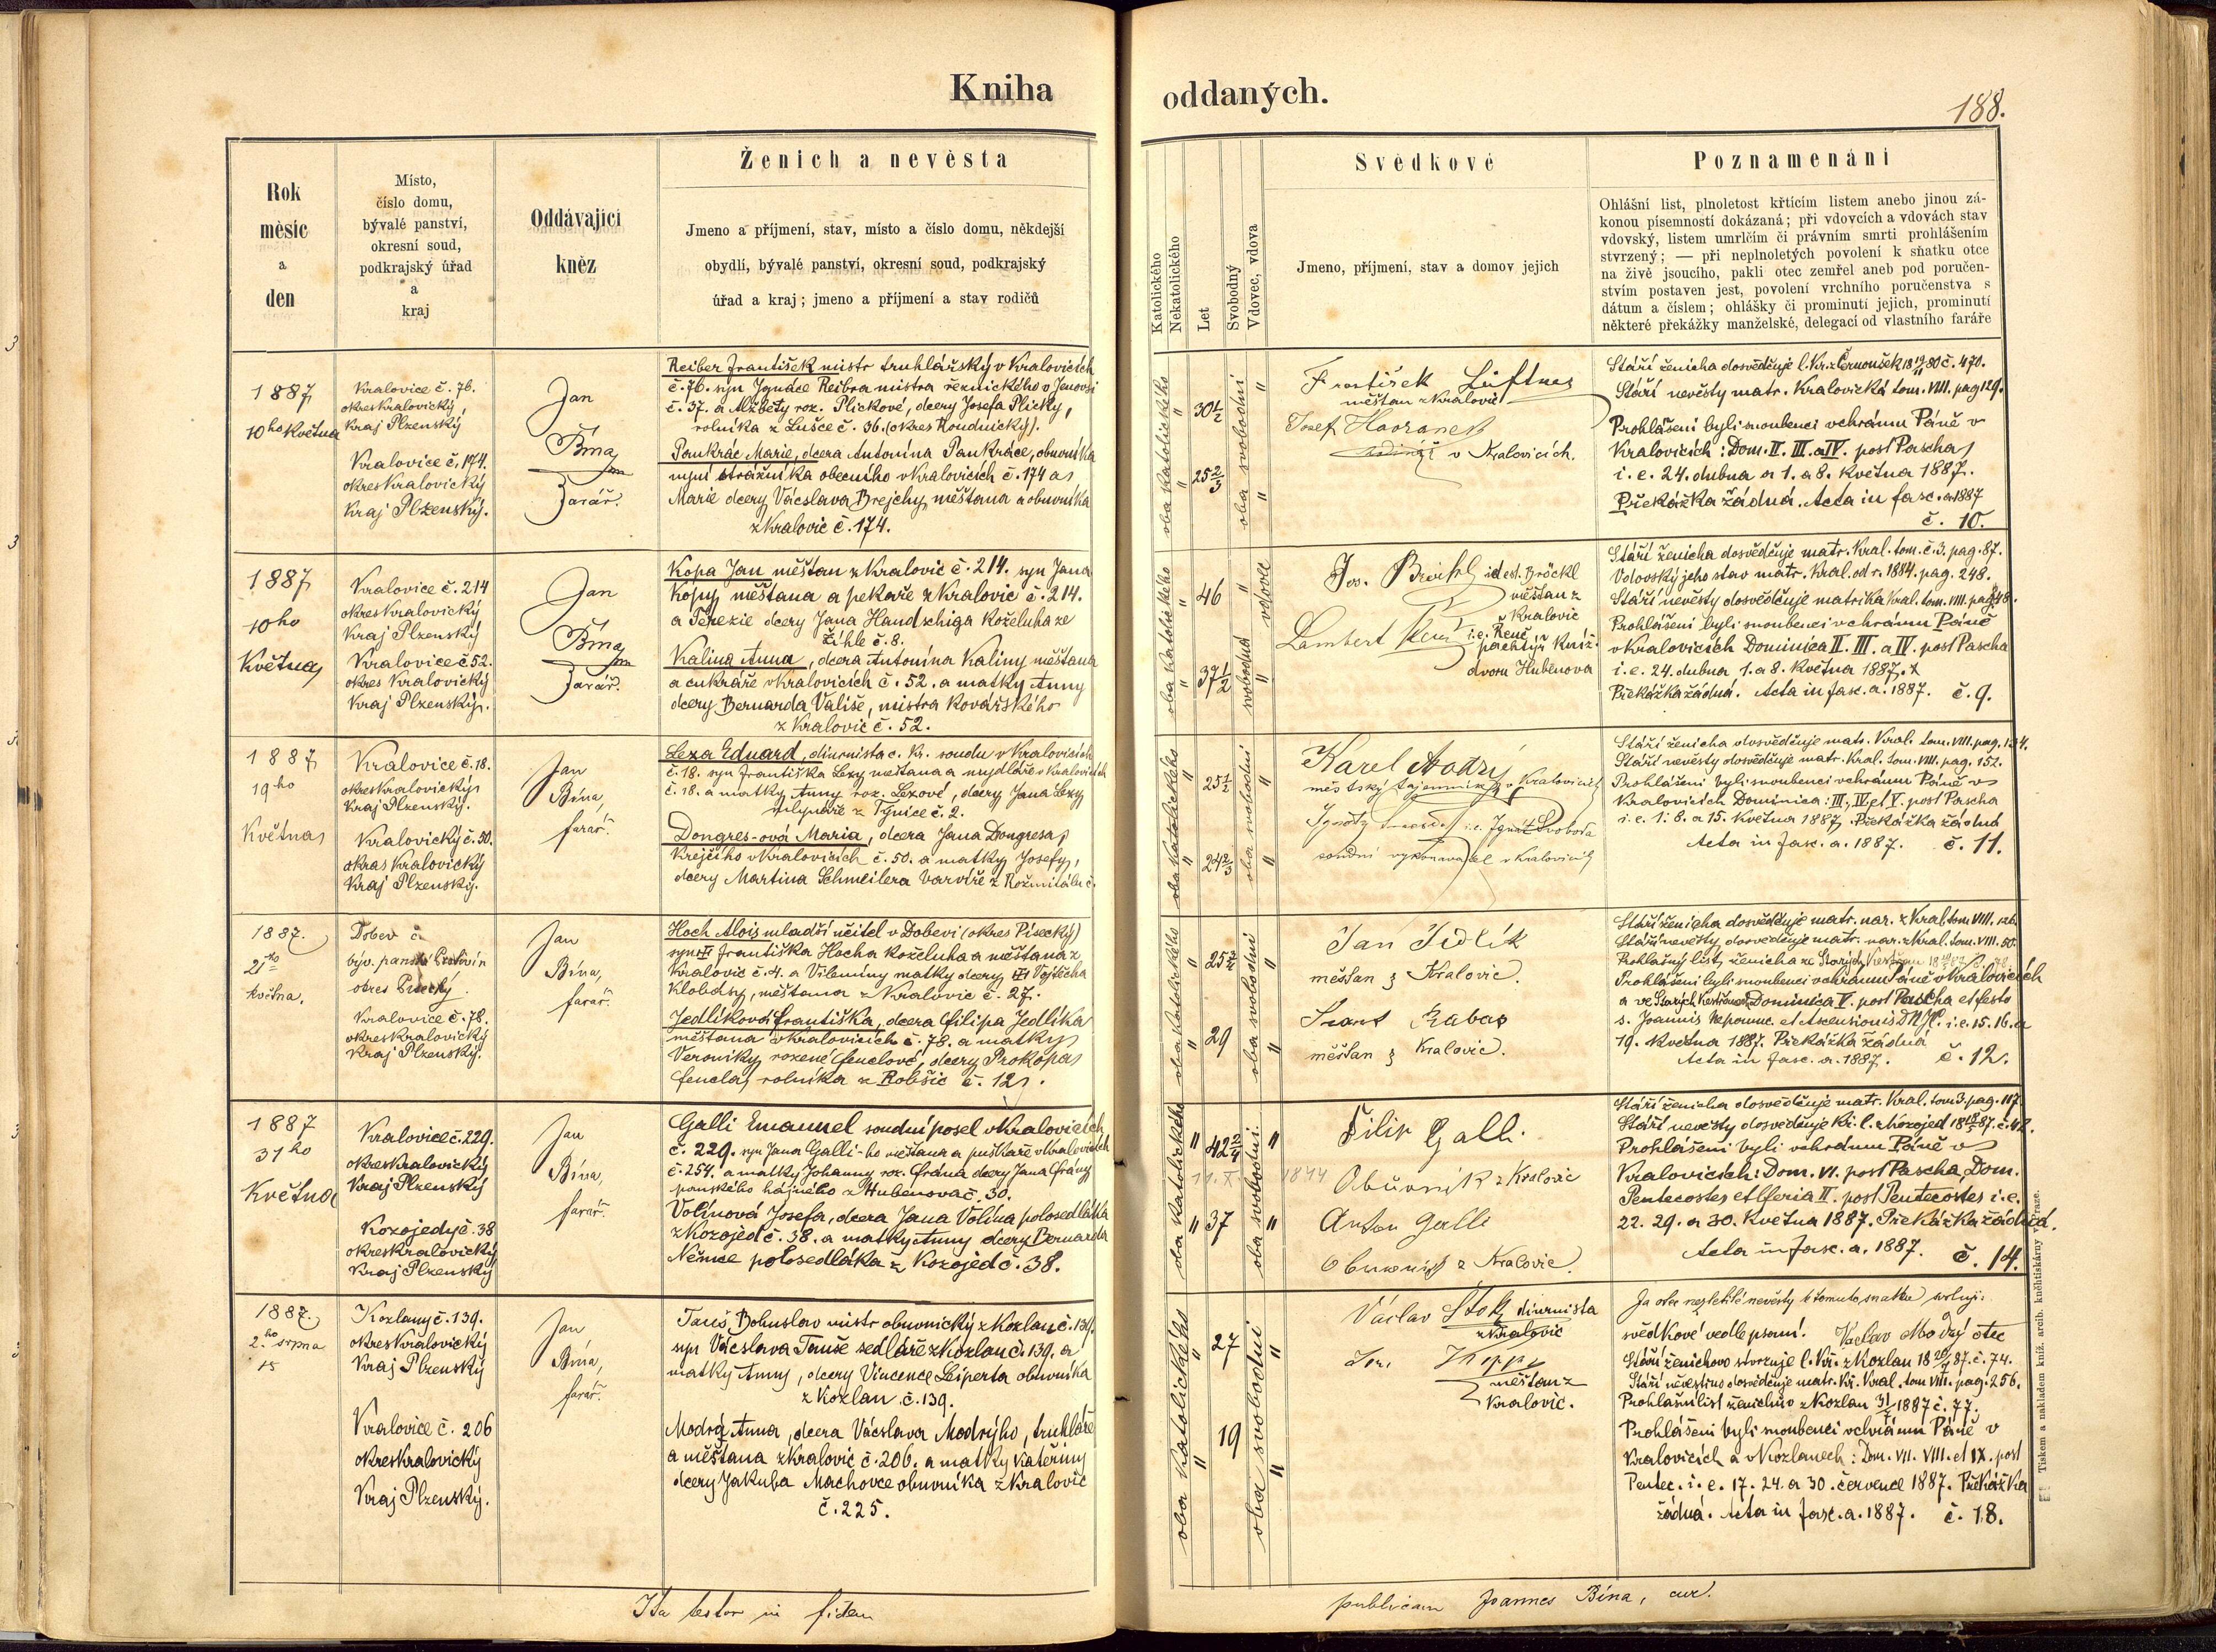 Kniha
oddaných.
188.
Rok
měsíc
a
den
Místo,
číslo domu,
bývalé panství,
okresní soud,
podkrajský úřad
a
kraj
Oddávající
kněz
Ženich a nevěsta
Jmeno a příjmení, stav, místo a číslo domu, někdejší
obydlí, bývalé panství, okresní soud, podkrajský
úřad a kraj; jmeno a příjmení a stav rodičů
Katolického
Nekatolického
Let
Svobodný
Vdovec, vdova
Svědkové
Jmeno, příjmení, stav a domov jejich
Poznamenání
Ohlášní list, plnoletost křtícím listem anebo jinou zá-
konou písemností dokázaná; při vdovcích a vdovách stav
vdovský, listem umrlčím či právním smrti prohlášením
stvrzený; — při neplnoletých povolení k sňatku otce
na živě jsoucího, pakli otec zemřel aneb pod poručen-
stvím postaven jest, povolení vrchního poručenstva s
dátum a číslem; ohlášky či prominutí jejich, prominutí
některé překážky manželské, delegací od vlastního faráře
1887
10ho Května
Kralovice č. 76.
okres Kralovický,
Kraj Plzenský
Kralovice č. 174.
okres Kralovický
Kraj Plzenský.
Jan
Bína
farář.
Reiber František mistr truhlářský v Kralovicích
č. 76. syn Ignáce Reibra mistra řeznického v
č. 37. a Alžběty roz. Plickové, dcery Josefa Plicky,
rolníka z Lušce č. 36. (okres Roudnický).
Pankrác Marie, dcera Antonína Pankráce, obuvníka
nyní strážníka obecního v Kralovicích č. 174 a
Marie dcery Vácslava Brejchy, měštana a obuvníka
z Kralovic č. 174.
oba katolického
30 1/2
25 2/3
oba svobodni
František Lüftner
měštan z Kralovic
Josef Havránek
v Kralovicích.
Stáří ženicha dosvědčuje l. Kř. z Černoušek 18 80 č. 470.
Stáří nevěsty matr. Kralovická tom. VIII. pag 129.
Prohlášeni byli snoubenci v chrámu Páně v
Kralovicích: Dom. II. III. a IV. post Pascha
i. e. 24. dubna a 1. a 8. Května 1887.
Překážka žádná. Acta in fasc. a 1887
č. 10.
1887
10ho
Května
Kralovice č. 214
okres Kralovický
Kraj Plzenský
Kralovice č 52.
okres Kralovický
Kraj Plzenský.
Jan
Bína
farář.
Kopa Jan měštan z Kralovic č. 214. syn Jana
Kopy měštana a pekaře z Kralovic č. 214.
a Terezie dcery Jana Handschiga Koželuha ze
Žihle č. 8.
Kalina Anna, dcera Antonína Kaliny měštana
a cukráře v Kralovicích č. 52. a matky Anny
dcery Bernarda Vališe, mistra Kovářského
z Kralovic č. 52.
oba katolického
46
37 1/2
vdovec
svobodna
Jos. Bröckl id est. Bröckl
měštan z
Kralovic
Lambert Renč i. e. Renč
pachtýř Kníž.
dvora Hubenova
Stáří ženicha dosvědčuje matr. Kral. tom. č. 3. pag. 87.
Vdovský jeho stav matr. Kral. od r. 1884. pag. 248.
Stáří nevěsty dosvědčuje matrika Kral. tom. VIII. pag 48.
Prohlášeni byli snoubenci v chrámu Páně
v Kralovicích Dominica II. III. a IV. post Pascha
i. e. 24. dubna 1. a 8. Května 1887.
Překážka žádná. Acta in fasc. a. 1887. č. 9.
1887
19ho
Května
Kralovice č. 18.
okres Kralovický
Kraj Plzenský.
Kralovický č. 50.
okres Kralovický
Kraj Plzenský.
Jan
Bína,
farář.
Leza Eduard, diurnista c. Kr. soudu v Kralovicích
č. 18. syn Františka Lezy měštana a mydláře v Kralovicích
č. 18. a matky Anny roz. Lezové, dcery Jana Lezy
z Týnice č. 2.
Dongres-ová Maria, dcera Jana Dongresa
Krejčího v Kralovicích č. 50. a matky Josefy,
dcery Martina Schmeilera barvíře z Rožmitálu č.
oba katolického
25 1/2
24 2/3
oba svobodni
Karel Modrý
městský tajemník v Kralovicích
Ignát Svoboda i. e. Ignát Svoboda
soudní vykonavatel v Kralovicích
Stáří ženicha dosvědčuje matr. Kral. tom. VIII. pag. 134.
Stáří nevěsty dosvědčuje matr. Kral. tom. VIII. pag. 152.
Prohlášeni byli snoubenci v chrámu Páně v
Kralovicích Dominica: III, IV et V. post Pascha
i. e. 1. 8. a 15. Května 1887. Překážka žádná
Acta in fasc. a. 1887. č. 11.
1887.
21ho
května.
Dobev č.
býv. panství Protivín
okres Písecký.
Kralovice č. 78.
okres Kralovický
Kraj Plzenský.
Jan
Bína,
farář.
Hoch Alois mladší učitel v Dobevi (okres Písecký)
syn Františka Hocha Koželuha a měštana z
Kralovic č. 4. a Vilemíny matky dcery Vojtěcha
Klobásy, měštana z Kralovic č. 27.
Jedlíková Františka, dcera Filipa Jedlíka
měštana v Kralovicích č. 78. a matky
Veroniky rozené Fenclové, dcery Prokopa
Fencla, rolníka z Robšic č. 12.
oba katolického
29
oba svobodni
Jan Jedlík
měsťan z Kralovic.
Žabas
měsťan z Kralovic.
Stáří ženicha dosvědčuje matr. nar. z Kral. tom. VIII.
Stáří nevěsty dosvědčuje matr. nar. z Kral. tom. VIII. 80.
Prohlašný list, ženicha ze Starých
Prohlášeni byli snoubenci v chrámu Páně v Kralovicích
a ve Starých Kestřanech Dominica V. post Pascha et festo
s. Joannis Nepomuc. et Ascensionis D N JC. i. e. 15. 16. a
19. Května 1887. Překážka žádná
Acta in fasc. a. 1887. č. 12.
1887
31ho
Května
Kralovice č. 229.
okres Kralovický
Kraj Plzenský
Kozojedy č. 38
okres Kralovický
Kraj Plzenský
Jan
Bína,
farář.
Galli Emanuel soudní posel v Kralovicích
č. 229. syn Jana Galli-ho měštana a puškaře v Kralovicích
č. 254. a matky Johanny roz. Frána dcery Jana Frány
panského hájného z Hubenova č. 30.
Volínová Josefa, dcera Jana Volína polosedláka
z Kozojed č. 38. a matky Anny dcery Bernarda
Němce polosedláka z Kozojed č. 38.
oba katolického
42 2/4
11. X. 1844
37
oba svobodni
Filip Galli
Obuvník z Kralovic
Anton Galli
Obuvník z Kralovic.
Stáří ženicha dosvědčuje matr. Kral. tom 3. pag. 117
Stáří nevěsty dosvědčuje Kř. l. z Kozojed 18 87. č. 42.
Prohlášeni byli v chrámu Páně v
Kralovicích: Dom. VI. post Pascha, Dom.
Pentecostes et feria II. post Pentecostes i. e.
22. 29. a 30. Května 1887. Překážka žádná.
Acta in fasc. a. 1887. č. 14.
1887.
2.ho srpna
Kozlany č. 139.
okres Kralovický
Kraj Plzenský
Kralovice č. 206
okres Kralovický
Kraj Plzenský.
Jan
Bína,
farář.
Tauš, Bohuslav mistr obuvnický z Kozlan č. 139.
syn Vácslava Tauše sedláře z Kozlan č. 139. a
matky Anny, dcery Vincence Leiperta obuvníka
z Kozlan č. 139.
Modrá Anna, dcera Vácslava Modrýho, truhláře
a měštana z Kralovic č. 206. a matky Kateřiny
dcery Jakuba Machovce obuvníka z Kralovic
č. 225.
oba katolického
27
19
oba svobodni
Václav Stok diurnista
z Kralovic
měštan z
Kralovic.
Ja otec nezletilé nevěsty k tomuto snatku svoluji
svědkové vedle psaní. Václav Modrý otec
Stáří ženichovo stvrzuje l. Kř. z Kozlan 18 87. č. 74.
Stáří nevěstino dosvědčuje matr. Kř. Kral. tom VIII. pag. 256.
Prohlášní list ženichův z Kozlan 31/7 1887 č. 77.
Prohlášeni byli snoubenci v chrámu Páně v
Kralovicích a v Kozlanech: Dom. VII. VIII. et IX. post
Pentec. i. e. 17. 24. a 30. července 1887. Překážka
žádná. Acta in fasc. a. 1887. č. 18.
Ita testor in fidem
publicam Joannes Bína, cur.
Tiskem a nakladem kníž. arcib. knihtiskárny v Praze.